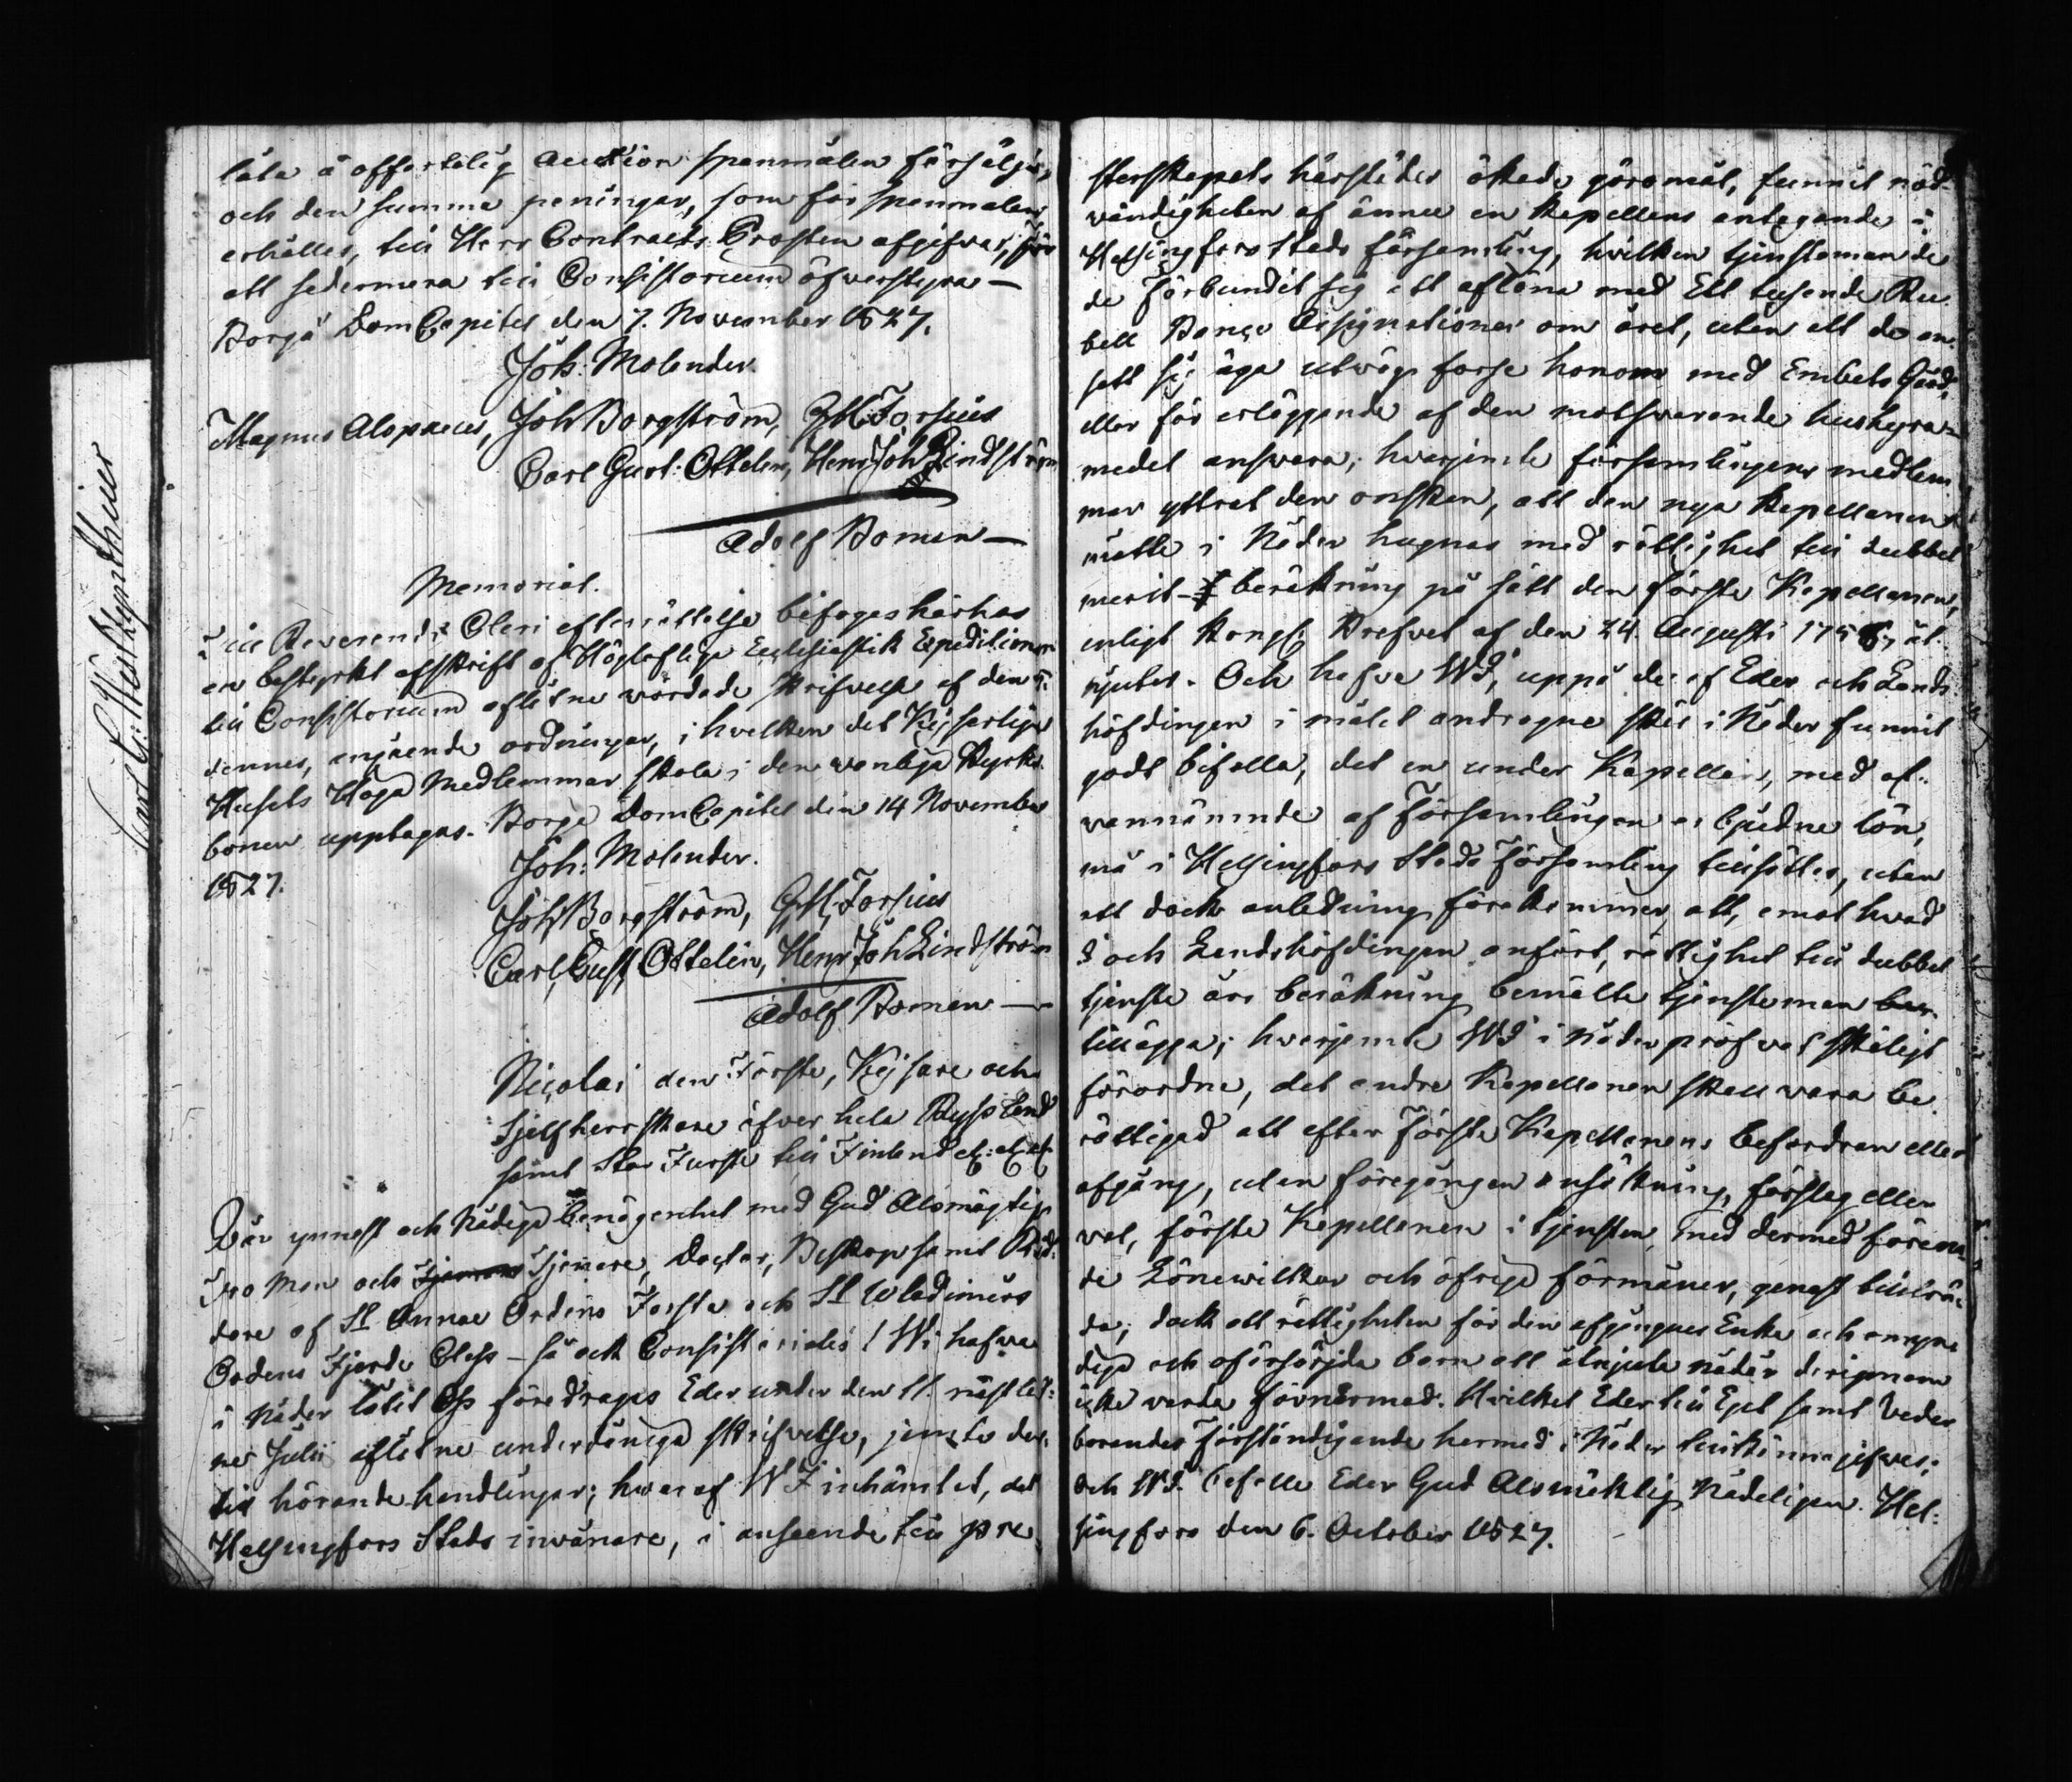 låta å offentelig Auction spanmålen försälja,
och den summa peningar, som för spanmålen
erhålles, till Herr Contracts Prosten afgifwas, för
att sedermera till Consistorium öfverstyra —
Borgå DomCapitel den 7. November 1827.
Joh: Molander.
Magnus Alopaeus, Joh Borgström, GM: Forsius
Carl Gust: Ottelin, Henr Joh Lindström
Adolf Boman —
Memorial.
Till Reverendi Cleri efterrättelse bifogas härhos
en bestyrkt afskrift af Högloflige Ecclesiastik Expeditionen
till Consistorium aflåtne wördade skrifwelse af den
dennes, angående ordningen, i hwilken det Kejserliga
Husets Höga Medlemmar skola i den wanliga Kyrko-
bönen upptagas. Borgå DomCapitel den 14 November
1827.
Joh: Molander.
Joh Borgström, GM: Forsius
Carl Gust Ottelin, Henr Joh Lindström
Adolf Boman —
Nicolai den Förste, Kejsare och
Sjelfherrskare öfver hela Ryssland
samt Stor Furste till Finland etc: etc: etc
Vår ynnest och Nådiga benägenhet med Gud Alsmägtig
Tro Man och Tjenare, Doctor, Biskop samt Rid-
dare af St Annae Ordens Första och St Wladimirs
Ordens Fjerde Class — så ock Consistoriales! Wi hafwe
i Nåder låtit Oss föredragas Eder under den 11. nästled-
ne Julii aflåtne underdåniga skrifwelse, jemte der-
till hörande handlingar; hwaraf WI inhämtat, att
Helsingfors Stads inwånare, i anseende till pre-
sterskapets härstädes ökade göromål, funnit nöd-
vändigheten af ännu en Kapellans antagande i
Helsingfors Stads församling, hvilken tjensteman de
de förbundit sig att aflöna med Ett tusende Ru-
bell Banco Assignationer om året, utan att de an-
sett sig äga utwäg förse honom med Embets Gård,
eller för erläggande af den motswarande hushyra-
medel answara; hvarjemte församlingens medlem-
mar yttrat den önskan, att den nya Kapellanen
måtte i Nåder hugnas med rättighet till dubbel
merit- beräkning på sätt den förste Kapellanen,
enligt Kongl. Brefvet af den 24. Augusti 1756, åt-
njutit. Och hafve WI, uppå de af Eder och Lands-
höfdingen i målet andragne skäl i Nåder funnit
godt bifalla, det en under Kapellan, med of-
vannämnde af Församlingen erbjudne lön,
må i Helsingfors Stads Församling tillsättas, utan
att dock anledning förekommer, att, emot hvad
I och Landshöfdingen anfört, rättighet till dubbel
tjenste års beräkning bemälte tjensteman
tillägga; hvarjemte WI i Nåder pröfvat skäligt
förordna, det andre Kapellanen skall vara be-
rättigad att efter Förste Kapellanens befordran eller
afgång, utan föregången ansökning, förslag eller
val, förste Kapellanen i tjensten, med dermed förena-
de Lönewilkor och öfriga förmåner, genast tillträ-
da; dock att rättigheten för den afgångnes Enka och omyn-
diga och oförsörjda barn att åtnjuta nådår derigenom
icke varda förnärmad. Hvilket Eder till Egit samt Veder-
börandes förständigande hermed i Nåder tillkännagifwes;
och WI. befalle Eder Gud Alsmäktig Nådeligen. Hel-
singfors den 6. October 1827.